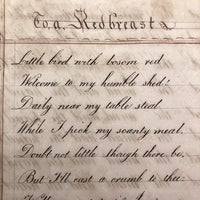 To a Redbreast
Little bird with bosom red
Welcome to my humble shed!
Daily near my table steal
While I peck my scanty meal.
Doubt not little though there be,
But I'll cast a crumb to thee: